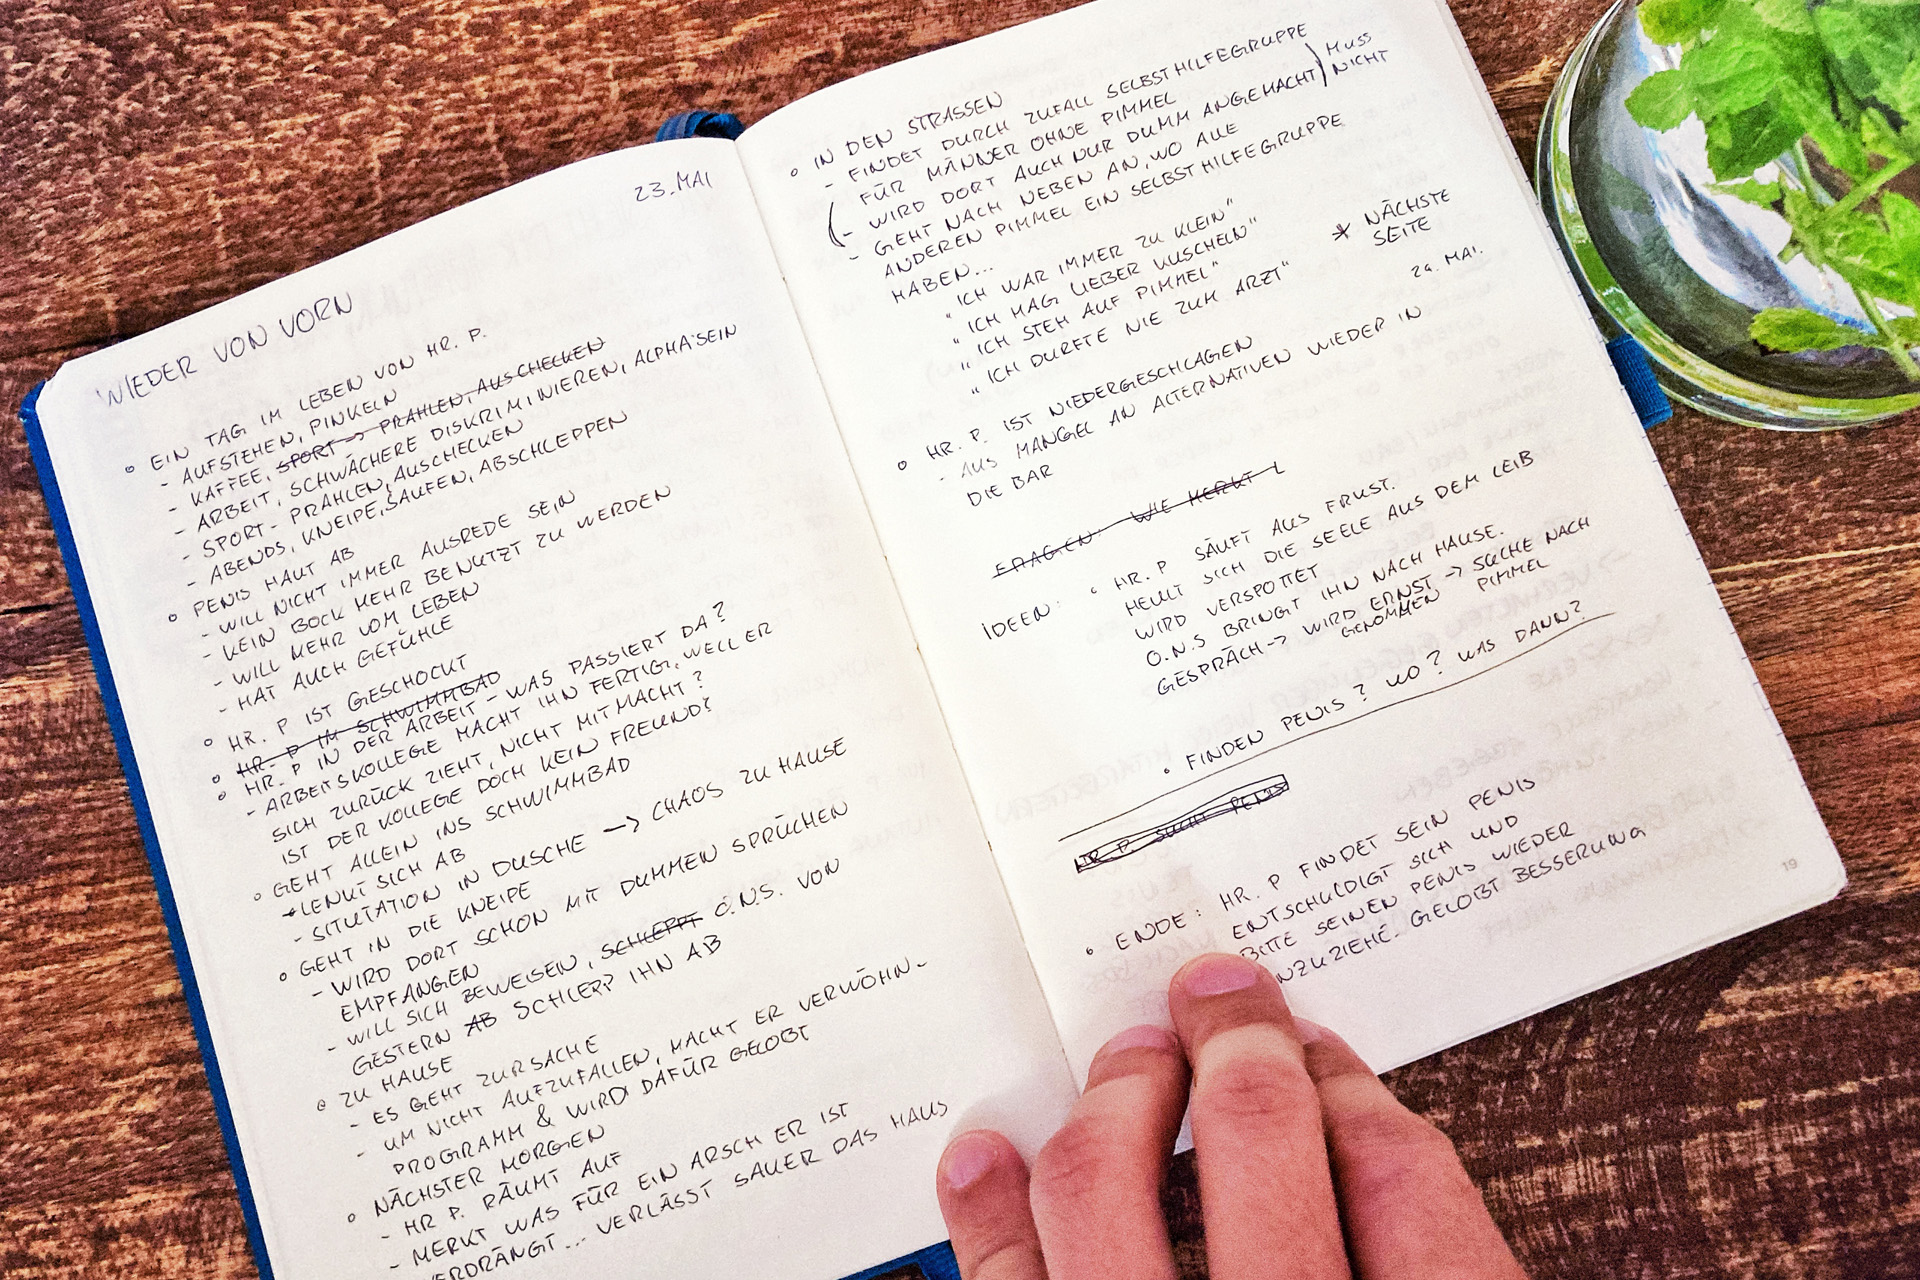 23. MAI
WIEDER VON VORN
EIN TAG IM LEBEN VON HR. P.
- AUFSTEHEN, PINKELN
- KAFFEE, SPORT -> PRAHLEN, AUSCHECKEN
- ARBEIT, SCHWÄCHERE DISKRIMINIEREN, ALPHA SEIN
- SPORT - PRAHLEN, AUSCHECKEN
- ABENDS, KNEIPE, SAUFEN, ABSCHLEPPEN
PENIS HAUT AB
- WILL NICHT IMMER AUSREDE SEIN
- KEIN BOCK MEHR BENUTZT ZU WERDEN
- WILL MEHR VOM LEBEN
- HAT AUCH GEFÜHLE
HR. P IST GESCHOCKT
HR. P IM SCHWIMMBAD
HR. P IN DER ARBEIT - WAS PASSIERT DA?
- ARBEITSKOLLEGE MACHT IHN FERTIG, WEIL ER
SICH ZURÜCK ZIEHT, NICHT MITMACHT?
IST DER KOLLEGE DOCH KEIN FREUND?
GEHT ALLEIN INS SCHWIMMBAD
LENKT SICH AB
- SITUTATION IN DUSCHE -> CHAOS ZU HAUSE
GEHT IN DIE KNEIPE
- WIRD DORT SCHON MIT DUMMEN SPRÜCHEN
EMPFANGEN
- WILL SICH BEWEISEN, SCHLEPPT O.N.S. VON
GESTERN AB SCHLEPP IHN AB
ZU HAUSE
- ES GEHT ZUR SACHE
- UM NICHT AUFZUFALLEN, MACHT ER VERWÖHN-
PROGRAMM & WIRD DAFÜR GELOBT
NÄCHSTER MORGEN
- HR P. RÄUMT AUF
- MERKT WAS FÜR EIN ARSCH ER IST
VERDRÄNGT... VERLÄSST SAUER DAS HAUS
IN DEN STRASSEN
- FINDET DURCH ZUFALL SELBSTHILFEGRUPPE
FÜR MÄNNER OHNE PIMMEL
(- WIRD DORT AUCH NUR DUMM ANGEMACHT) MUSS NICHT
- GEHT NACH NEBEN AN, WO ALLE
ANDEREN PIMMEL EIN SELBSTHILFEGRUPPE
HABEN...
"ICH WAR IMMER ZU KLEIN"
"ICH MAG LIEBER KUSCHELN"
"ICH STEH AUF PIMMEL"
"ICH DURFTE NIE ZUM ARZT"
* NÄCHSTE
SEITE
24. MAI.
HR. P. IST NIEDERGESCHLAGEN
- AUS MANGEL AN ALTERNATIVEN WIEDER IN
DIE BAR
FRAGEN: WIE MERKT L
IDEEN: HR. P SÄUFT AUS FRUST.
HEULT SICH DIE SEELE AUS DEM LEIB
WIRD VERSPOTTET
O.N.S BRINGT IHN NACH HAUSE.
GESPRÄCH -> WIRD ERNST GENOMMEN -> SUCHE NACH PIMMEL
FINDEN PENIS? WO? WAS DANN?
HR P. SUCHT PENIS
ENDE: HR. P FINDET SEIN PENIS
ENTSCHULDIGT SICH UND
BITTE SEINEN PENIS WIEDER
NZUZIEHE. GELOBT BESSERUNG
19